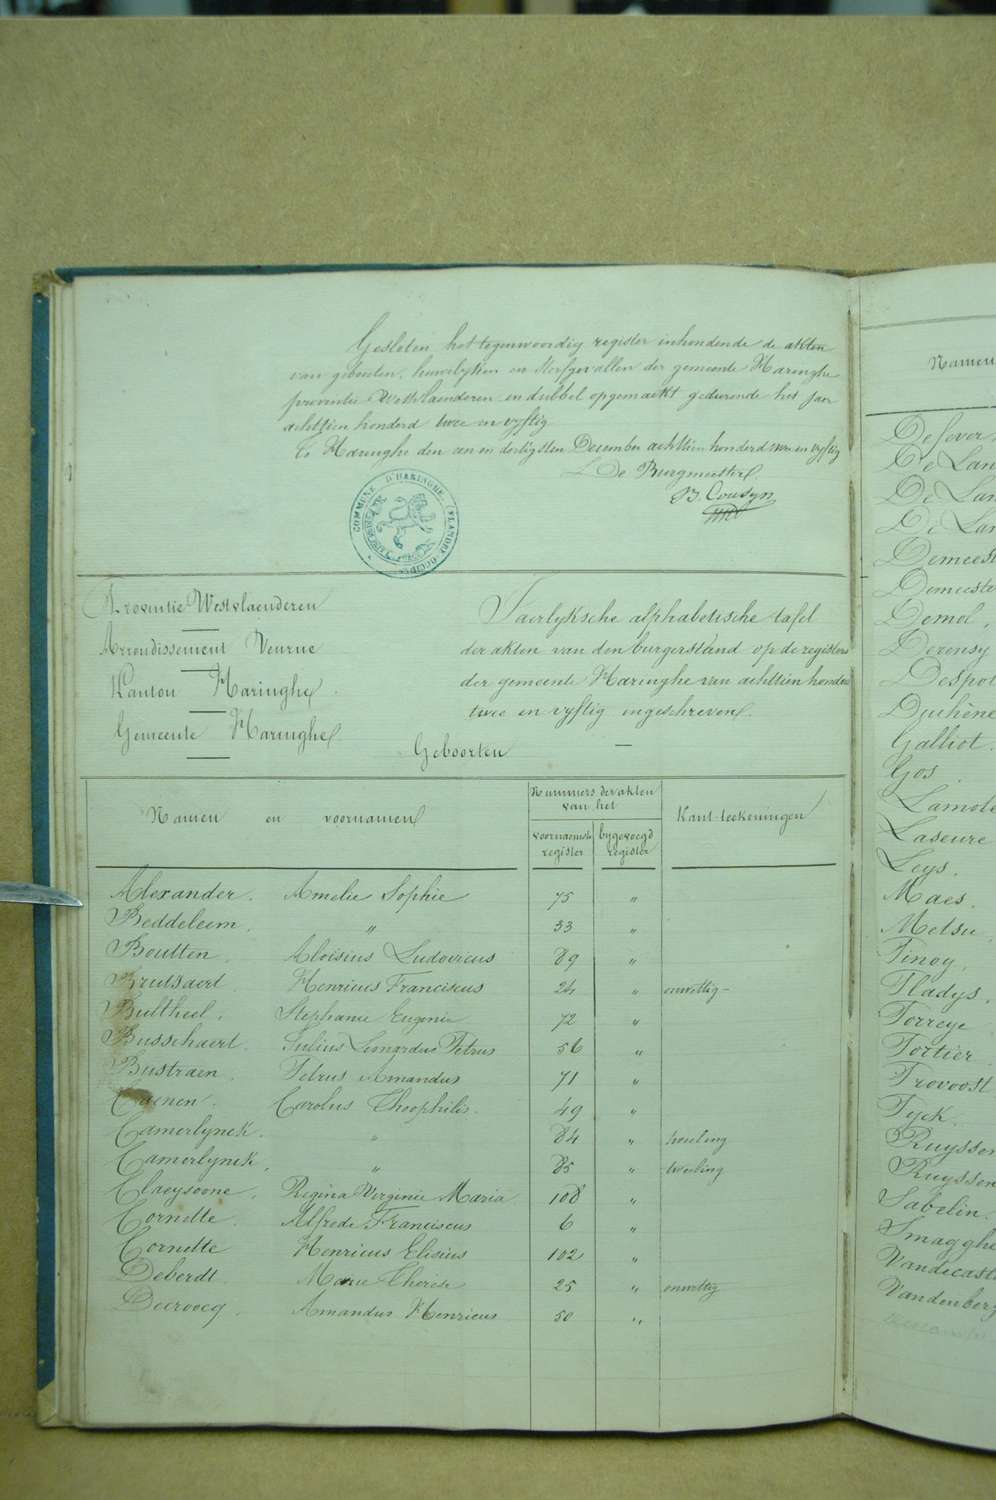 Gesloten het tegenwoordig register inhoudende de akten
van geboorten, huwelyken en sterfgevallen der gemeente Haringhe
provintie Westvlaenderen in dubbel opgemaekt gedurende het jaer
achttien honderd twee en vyftig
Te Haringhe den een en dertigsten December achttien honderd twee en vyftig
De Burgmeester
B. Cousyn
COMMUNE D'HARINGHE (FLANDRE-OCCID.)
Provintie Westvlaenderen
Arrondissement Veurne
Kanton Haringhe
Gemeente Haringhe
Jaerlyksche alphabetische tafel
der akten van den burgerstand op de registers
der gemeente Haringhe van achttien honderd
twee en vyftig ingeschreven.
Geboorten
Namen en voornamen
Nummers der akten
van het
voornaemste register
bygevoegd register
Kant-teekeningen
Alexander. Amelie Sophie 75 "
Beddeleem. " 33 "
Boutten. Aloïsius Ludovicus 89 "
Brutsaert. Henricus Franciscus 24 " onwettig
Bultheel. Stephanie Eugenie 72 "
Busschaert. Julius Leonardus Petrus 56 "
Bustraen. Petrus Amandus 71 "
Caenen. Carolus Theophilis. 49 "
Camerlynck. " 84 " tweeling
Camerlynck. " 85 " tweeling
Claeysoone. Regina Virginie Maria 108 "
Cornette. Alfrede Franciscus 6 "
Cornette Henricus Elisius 102 "
Deberdt Marie Therese 25 " onwettig
Decroocq. Amandus Henricus 50 "
Namen
Defever
De Lan
De Lan
De Lan
Demeest
Demeeste
Demol,
Derensy
Despot
Duhêne
Galliot.
Gos.
Lamote
Laseure
Leys.
Maes.
Metsu
Pinoy,
Pladys,
Porreye
Portier
Provoost
Pyck.
Ruyssen
Ruyssen
Sabelin.
Smagghe
Vandecast
Vandenberg